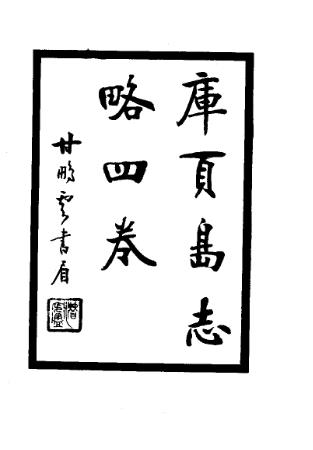 庫頁島志
略四卷
甘鵬雲書眉